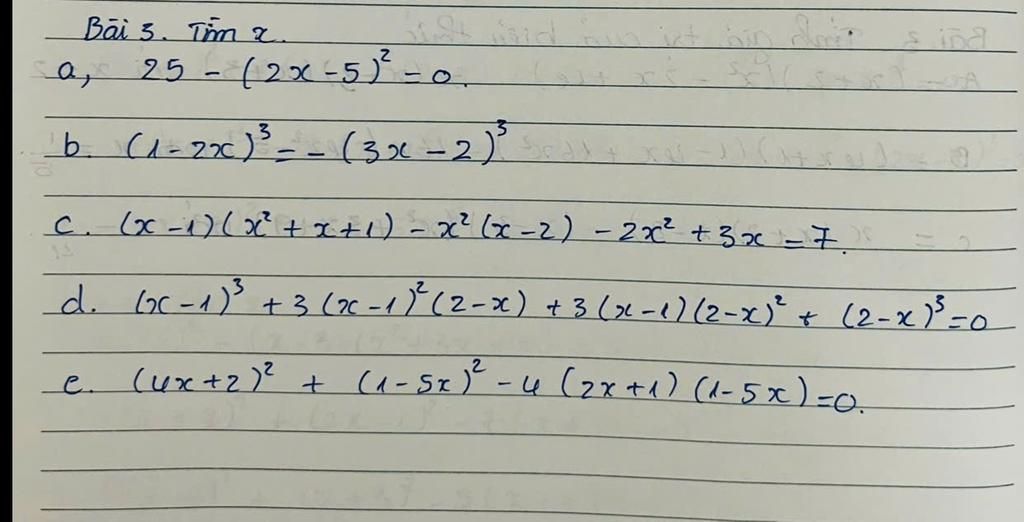 Bài 3. Tìm x.
a, 25 - (2x - 5)² = 0.
b. (1 - 2x)³ = - (3x - 2)³
c. (x - 1)(x² + x + 1) - x²(x - 2) - 2x² + 3x = 7.
d. (x - 1)³ + 3(x - 1)²(2 - x) + 3(x - 1)(2 - x)² + (2 - x)³ = 0
e. (4x + 2)² + (1 - 5x)² - 4(2x + 1)(1 - 5x) = 0.